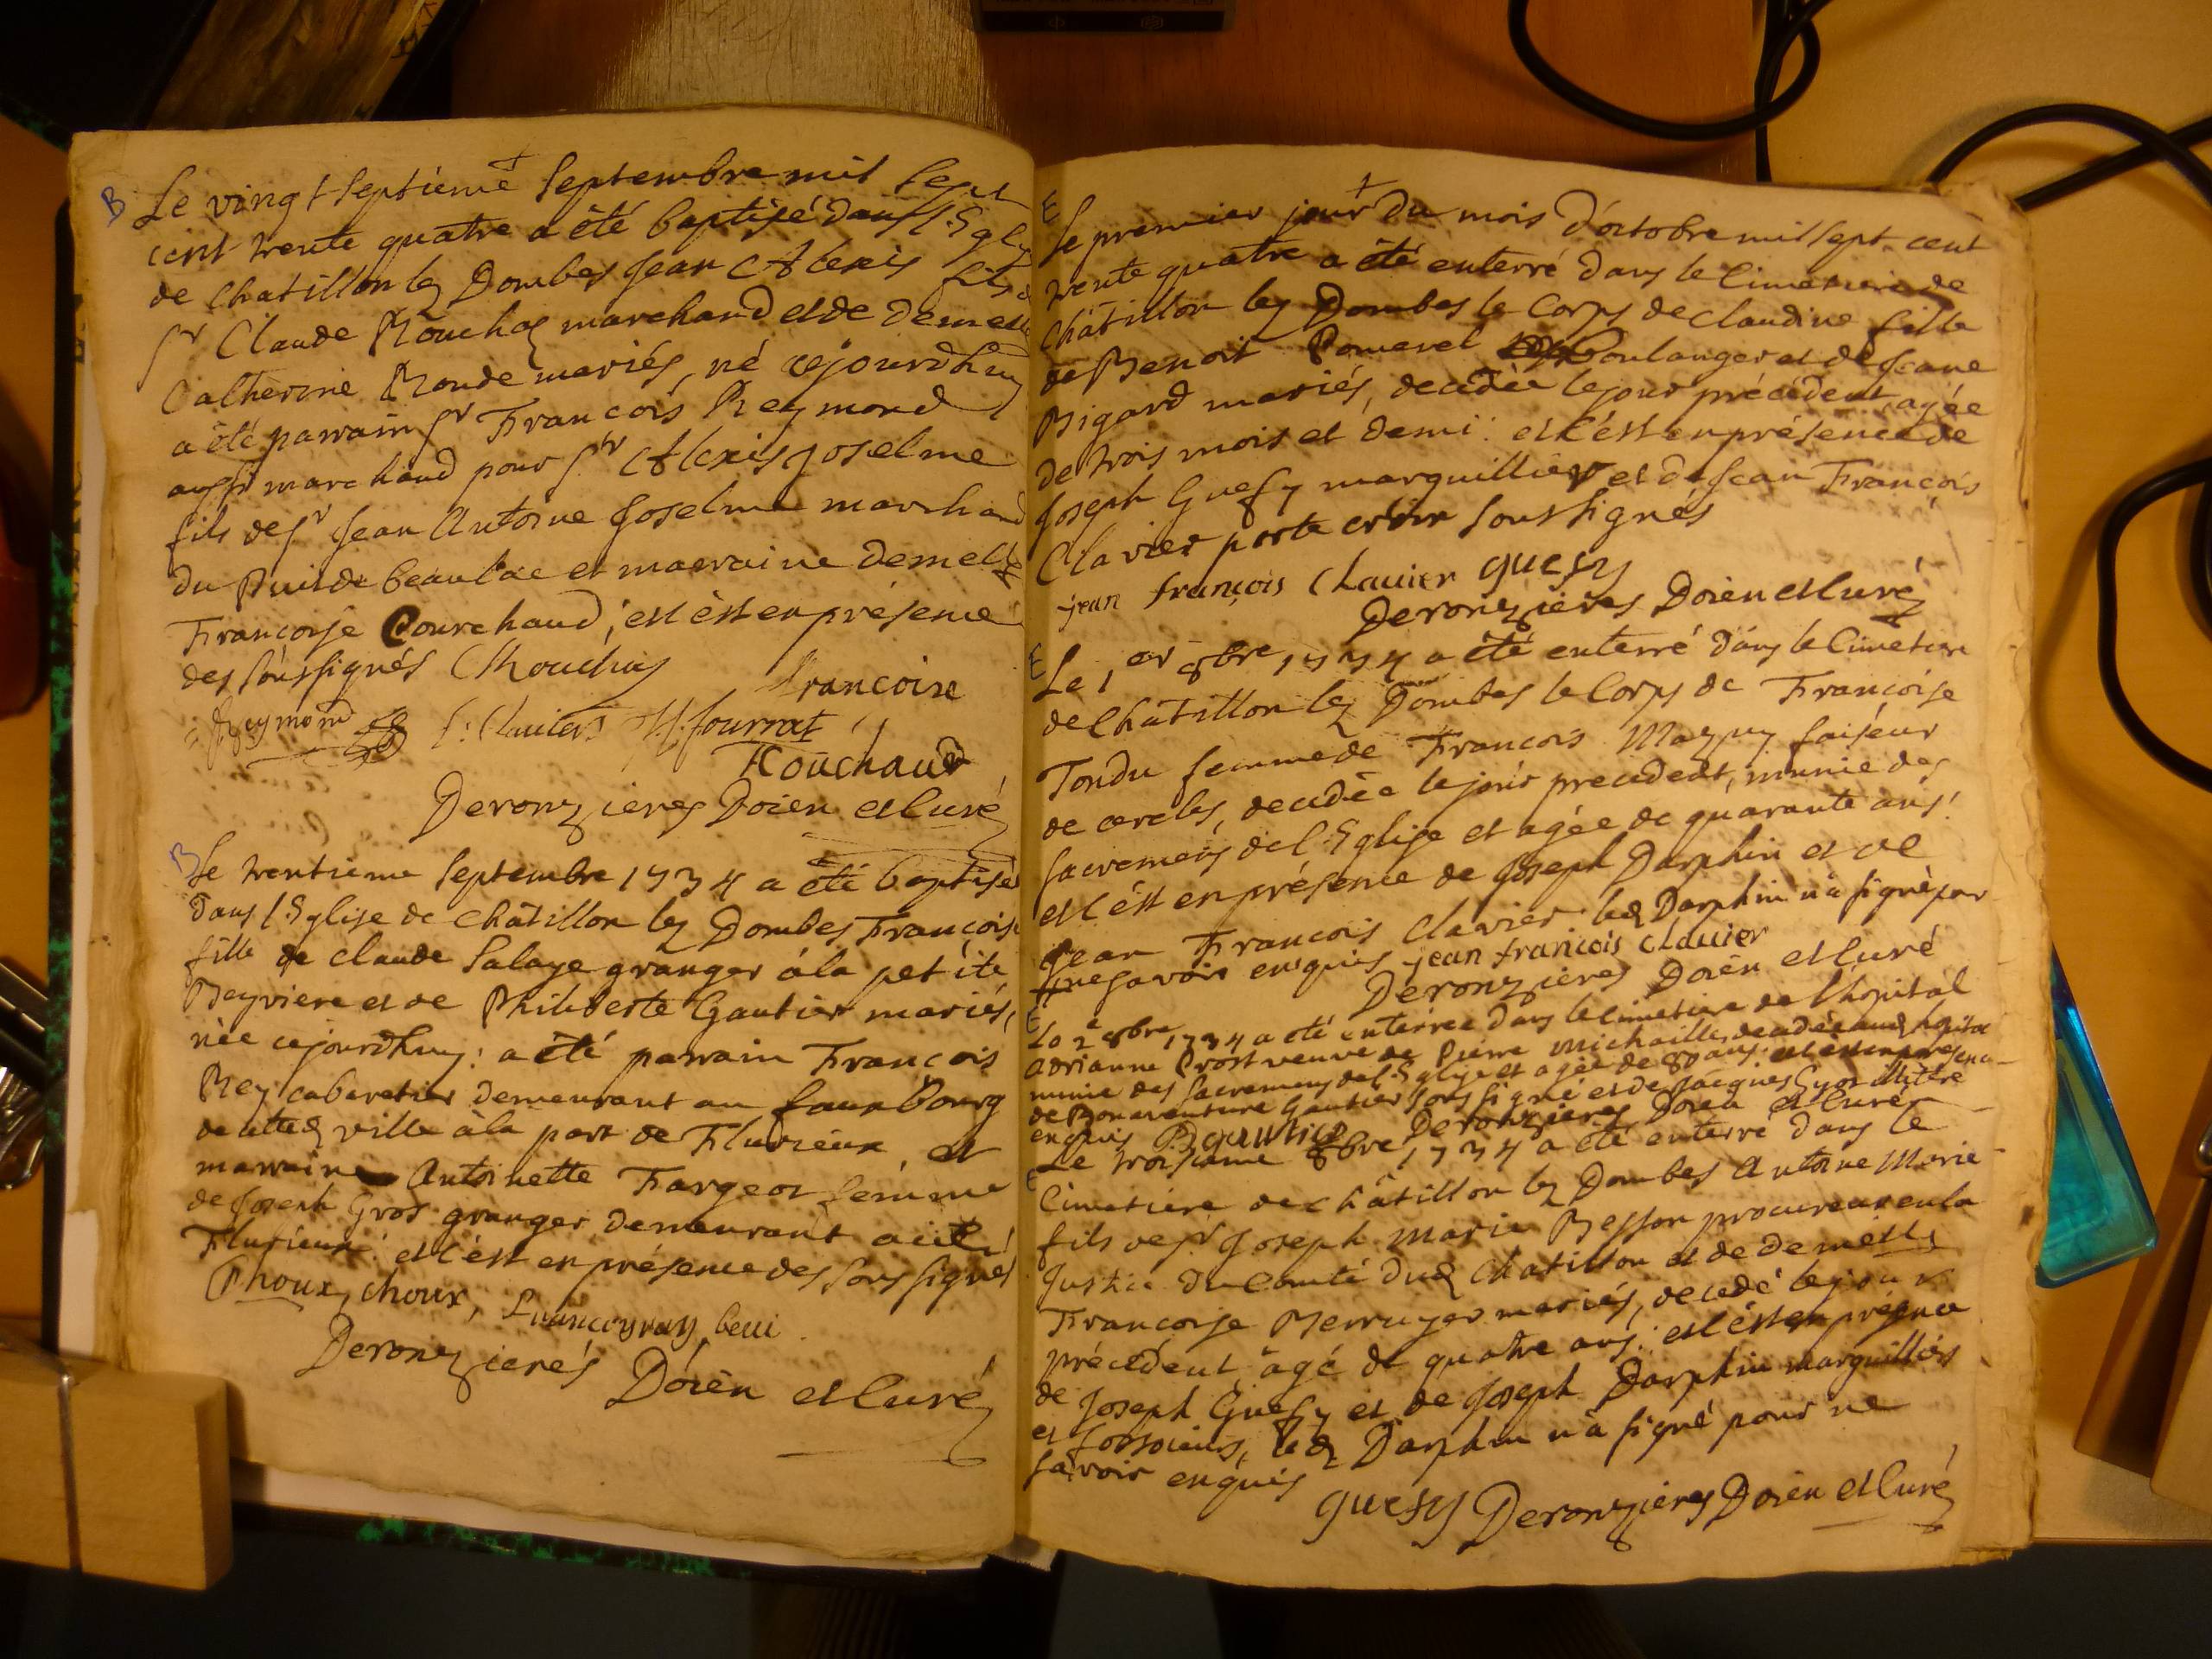 B Le vingt septieme Septembre mil Sept
cent trente quatre a été baptisé dans l'Eglise
de Chatillon lez Dombes Jean Alexis fils de
Sr Claude Mouchas marchand et de demelle
Catherine Monde mariés, né cejourdhuy
a été parrain Sr François Reymond
aussi marchand pour Sr Alexis Joselme
fils de Sr Jean Antoine Joselme marchand
du de beaulac et marraine demelle
Françoise Courchaud, et c'est en présence
des soussignés Mouchas
Francoise
Reymond fourrat
Couchaud
Deronzieres Doïen et Curé
B Le trentieme Septembre 1734 a été baptisée
dans l'Eglise de Châtillon lez Dombes Françoise
fille de Claude Salaye granger à la petite
Beyviere et de Philiberte Gautier mariés,
née cejourdhuy: a été parrain François
Rey cabaretier demeurant au fauxbourg
de cette ville à la port de Flurieux, et
marraine Antoinette Fargeot femme
de Joseph Gros granger demeurant audit
Flurieux: et c'est en présence des soussignés
Choux, choux,
Deronzierés Doïen et Curé
E Le premier jour du mois d'octobre mil sept-cent
trente quatre a été enterré dans le Cimetiere de
Châtillon lez Dombes le Corps de Claudine fille
de Benoit Pomerel boulanger et de Jeane
Bigard mariés, decedée le jour précédent, agée
de trois mois et demi: et c'est en présence de
Joseph Guesy marguillier et de Jean François
Clavier porte croix soussignés
jean françois Clauier guesy
Deronzieres Doïen et Curé
E Le 1er 8bre 1734 a été enterré dans le Cimetiere
de Châtillon lez Dombes le Corps de Françoise
Tondu femme de François Mazuy faiseur
de cercles, decedée le jour precedent, munie des
sacremens de l'Eglise et agée de quarante ans:
et c'est en présence de Joseph Darphin et de
Jean François Clavier led Darphin n'a signé pour
ne savoir enquis jean francois clauier
Deronzieres Doïen et Curé
E Le 2e 8bre 1734 a été enterrée dans le Cimetiere de l'hopital
Adrianne Prost veuve de Pierre Michaille, decedée aud hopital
munie des sacremens de l'Eglise et agée de 80 ans: et c'est en presence
de Bonaventure Gautier soussigné et de Jacques Guyot illitéré
enquis Bgautier Deronzieres Doïen et Curé
E Le troisieme 8bre 1734 a été enterré dans le
Cimetiere de Châtillon lez Dombes Antoine Marie
fils de Sr Joseph Marie Besson procureur en la
Justice du Comté dud Chatillon et de demelle
Françoise Merruyer mariés, decedé le jour
précédent, agé de quatre ans: et c'est en présence
de Joseph Guesy et de Joseph Darphin marguillier
et fossoieur, led Darphin n'a signé pour ne
savoir enquis
guesy Deronzieres Doïen et Curé